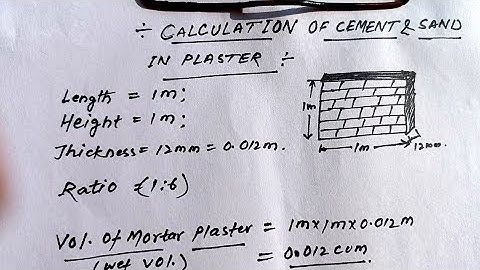 ÷ CALCULATION OF CEMENT & SAND
IN PLASTER ÷
Length = 1m;
Height = 1m;
Thickness = 12mm = 0.012m.
Ratio = (1:6)
1m
1m
12mm.
Vol. Of Mortar Plaster = 1m x 1m x 0.012m
(wet vol.) = 0.012 cum